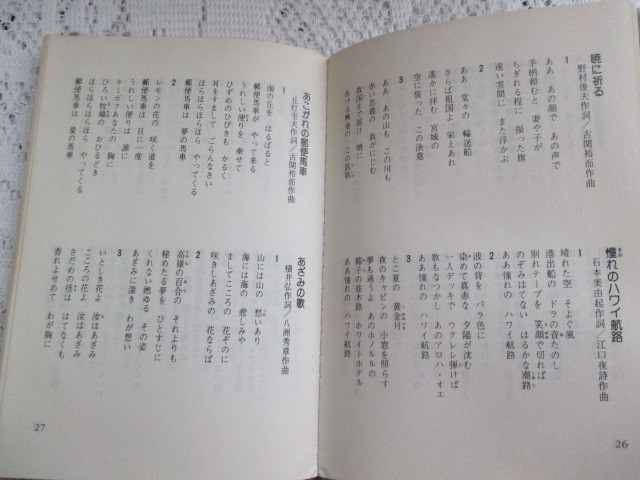 暁に祈る
野村俊夫作詞/古関裕而作曲
1
ああ あの顔で あの声で
手柄頼むと 妻や子が
ちぎれる程に 振った旗
遠い雲間に また浮かぶ
2
ああ 堂々の 輸送船
さらば祖国よ 栄えあれ
遥かに拝む 宮城の
空に誓った この決意
3
ああ あの山も この川も
赤い忠義の 血がにじむ
故国まで届け 暁に
あげる興亜の この雄叫
憧れのハワイ航路
石本美由起作詞/江口夜詩作曲
1
晴れた空 そよぐ風
港出船の ドラの音たのし
別れテープを 笑顔で切れば
のぞみはてない はるかな潮路
ああ憧れの ハワイ航路
2
波の背を バラ色に
染めて真赤な 夕陽が沈む
一人デッキで ウクレレ弾けば
歌もなつかし あのアロハ・オエ
ああ憧れの ハワイ航路
3
とこ夏の 黄金月
夜のキャビンの 小窓を照らす
夢も通うよ あのホノルルの
椰子の並木路 ホワイトホテル
ああ憧れの ハワイ航路
26
あこがれの郵便馬車
丘灯至夫作詞/古関裕而作曲
1
南の丘を はるばると
郵便馬車が やって来る
うれしい便りを 乗せて
ひずめのひびきも かるく
耳をすまして ごらんなさい
ほらほらほらほら やってくる
郵便馬車は 夢の馬車
2
レモンの花の 咲く道を
郵便馬車は 日に一度
うれしい便りは 誰に
キミボクあなたの 胸に
ひろい牧場の おひるどき
ほらほらほらほら やってくる
郵便馬車は 愛の馬車
あざみの歌
横井弘作詞/八洲秀章作曲
1
山には山の 愁いあり
海には海の 悲しみや
ましてこころの 花ぞのに
咲きしあざみの 花ならば
2
高嶺の百合の それよりも
秘めたる夢を ひとすじに
くれない燃ゆる その姿
あざみに深き わが想い
3
いとしき花よ 汝はあざみ
こころの花よ 汝はあざみ
さだめの径は はてなくも
香れよせめて わが胸に
27